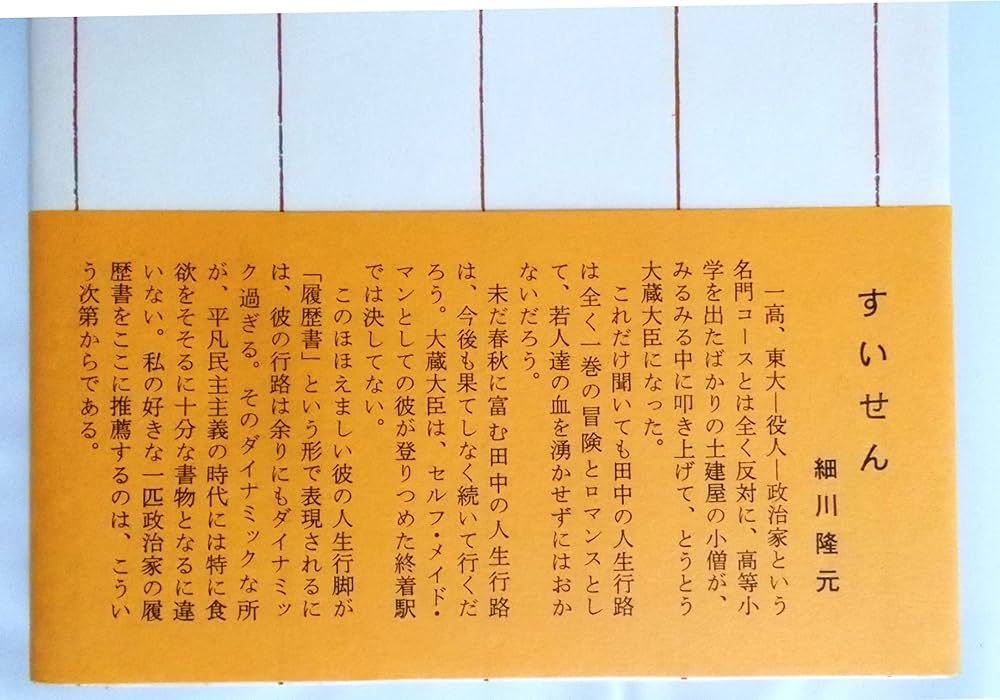 すいせん
細川隆元
一高、東大―役人―政治家という
名門コースとは全く反対に、高等小
学を出たばかりの土建屋の小僧が、
みるみる中に叩き上げて、とうとう
大蔵大臣になった。
これだけ聞いても田中の人生行路
は全く一巻の冒険とロマンスとし
て、若人達の血を湧かせずにはおか
ないだろう。
未だ春秋に富む田中の人生行路
は、今後も果てしなく続いて行くだ
ろう。大蔵大臣は、セルフ・メイド・
マンとしての彼が登りつめた終着駅
では決してない。
このほほえましい彼の人生行脚が
「履歴書」という形で表現されるに
は、彼の行路は余りにもダイナミッ
ク過ぎる。そのダイナミックな所
が、平凡民主主義の時代には特に食
欲をそそるに十分な書物となるに違
いない。私の好きな一匹政治家の履
歴書をここに推薦するのは、こうい
う次第からである。